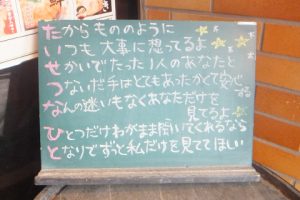 たからもののように
いつも大事に想ってるよ
せかいでたった1人のあなたと
つないだ手はとてもあったかくて安心
する
なんの迷いもなくあなただけを
見てるよ
ひとつだけわがまま聞いてくれるなら
となりでずっと私だけを見ててほしい